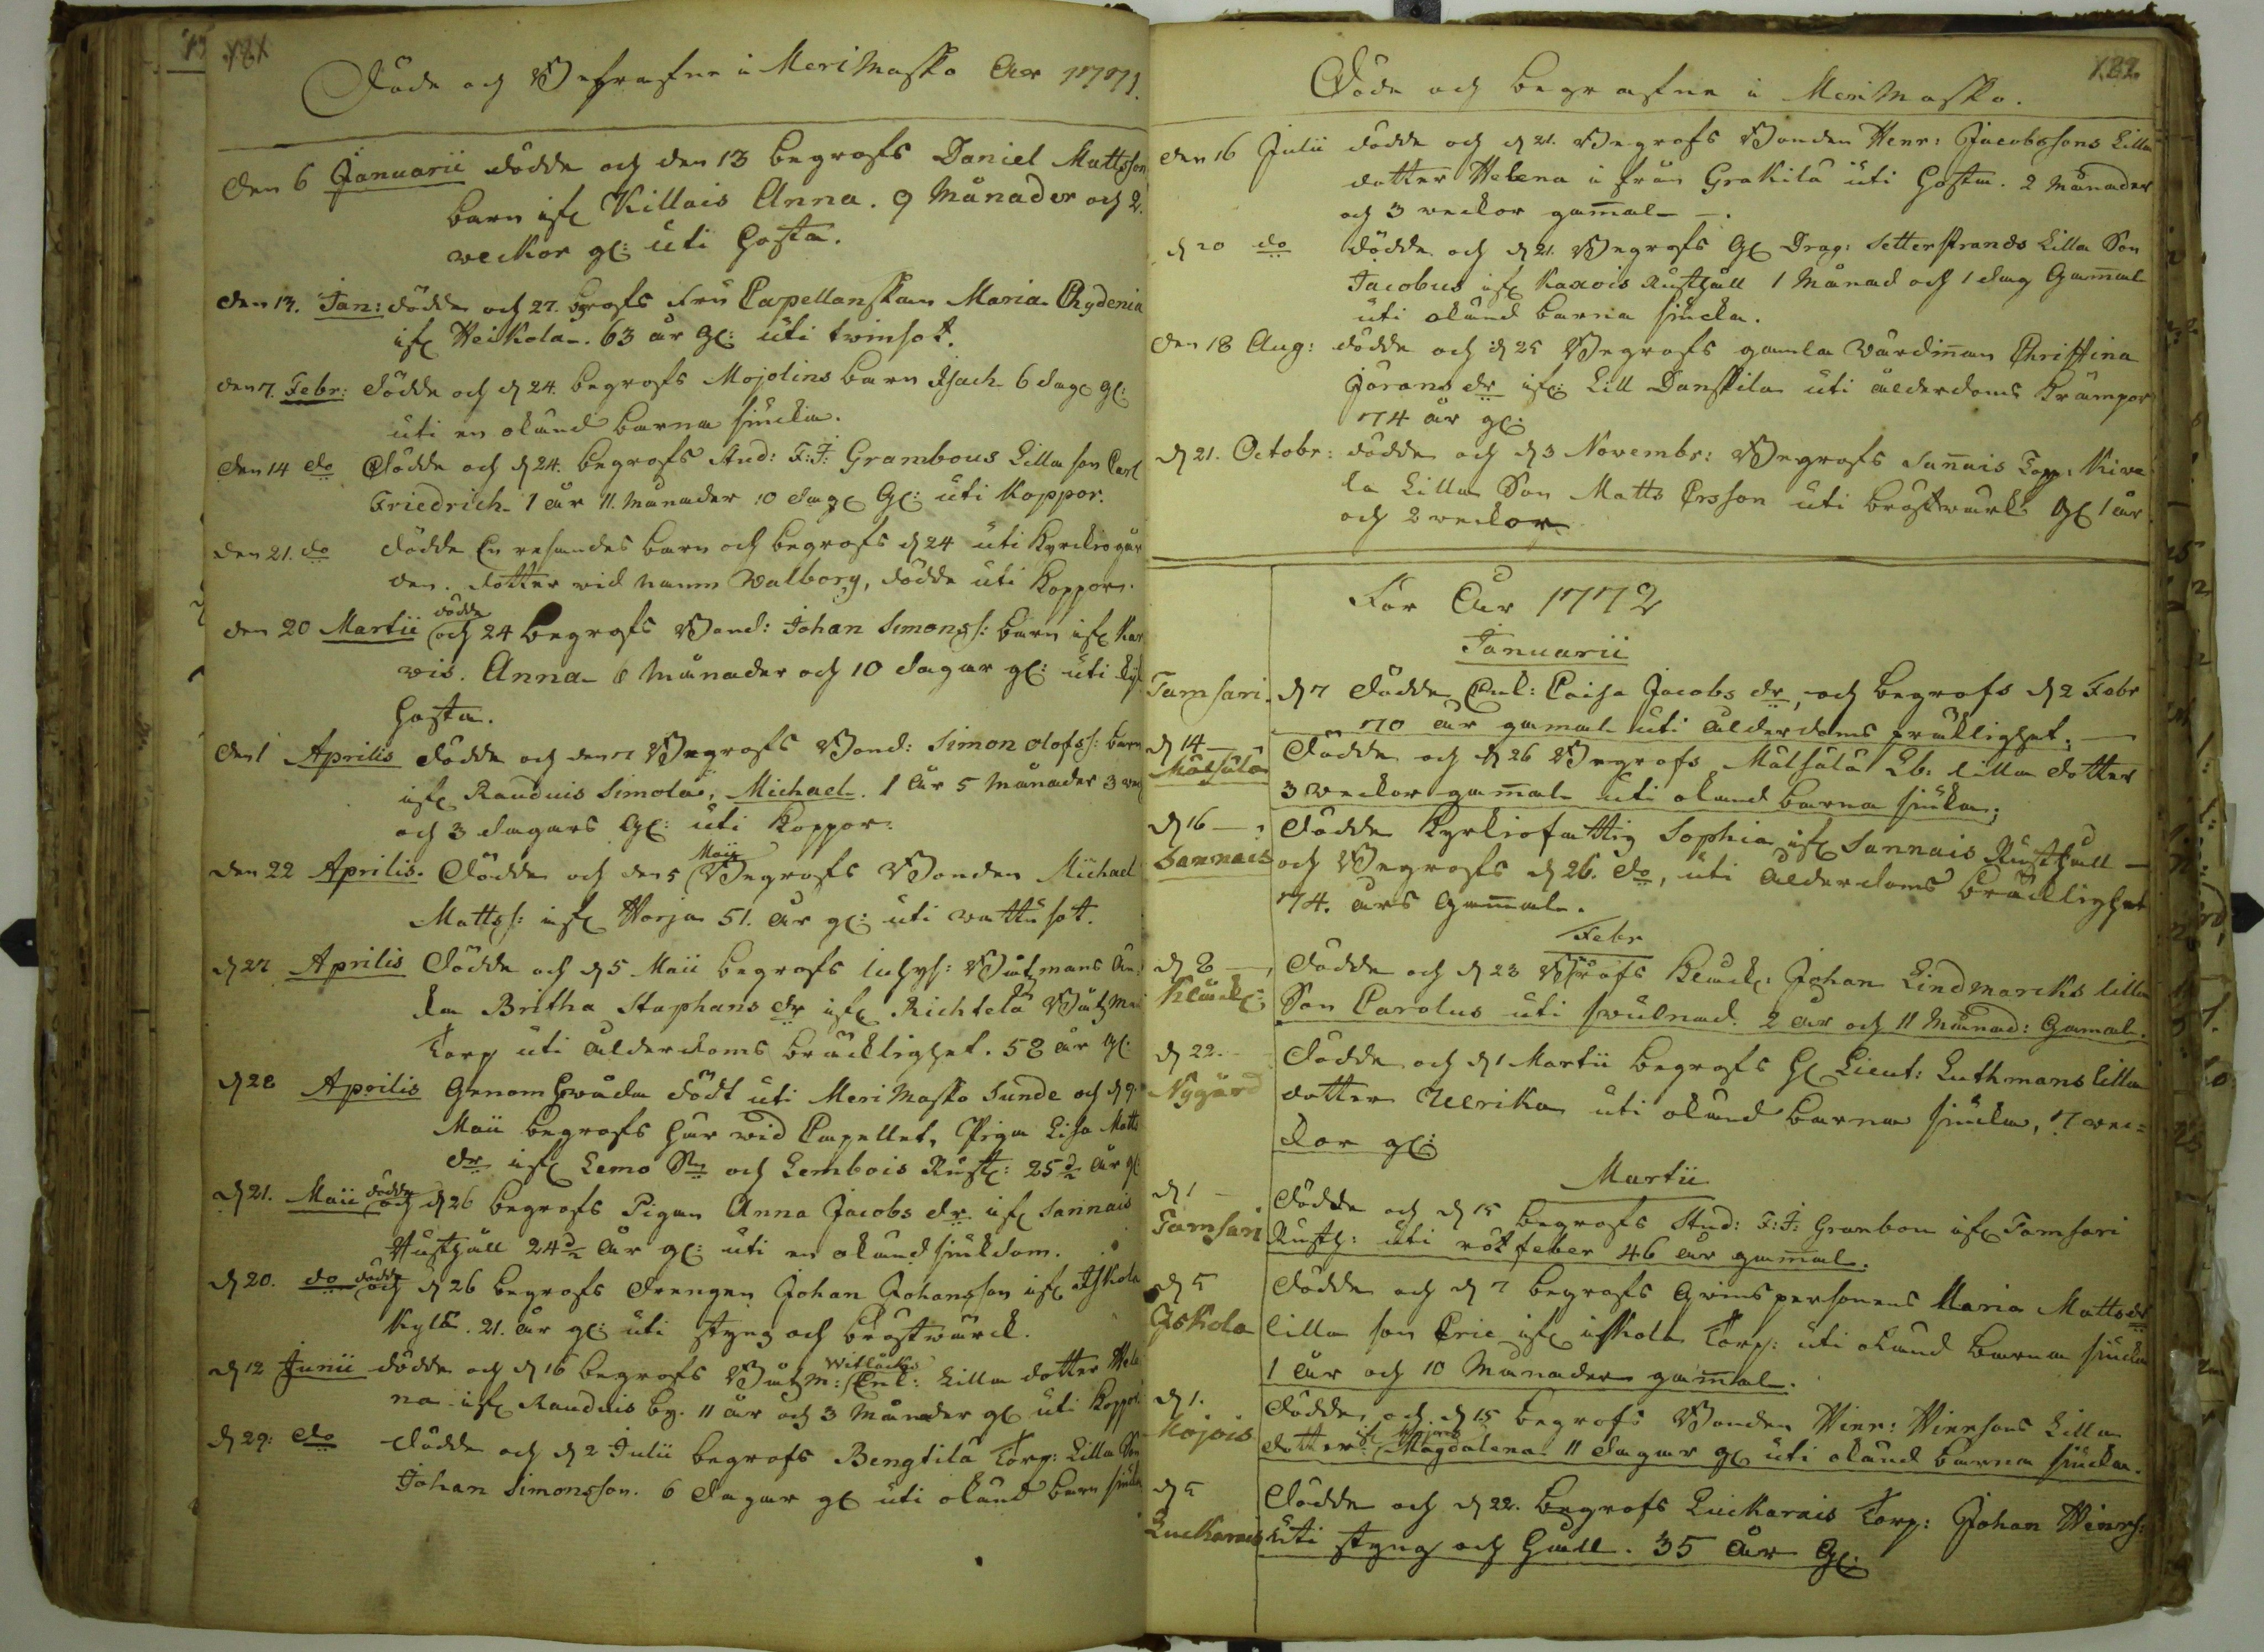 181
Döde och Begrafne i MeriMasko Åer 1771.
den 6 Januarii dödde och den 13 begrofs Daniel Mattsson
barn ifr Killais Anna. 9 Månader och 2.
weckor gl: uti Hosta.
den 13. Jan: dödde och 27. begrofs Fru Capellanskan Maria Rydenia
ifr Heikola. 63 år gl: uti twinsot.
den 7. Febr: dödde och d 24. begrofs Mojolins barn Isach 6 dag gl:
uti en okänd barna siucka.
den 14 do Dödde och d 24. begrofs Stud: F: J: Grambous Lilla son Carl
Friedrich 1 år 11. månader 10 dag Gl: uti Koppor.
den 21. do dödde En resandes barn och begrofs d 24 uti Kyrckiogår
den. dotter wid namn Walborg, dödde uti Koppor.
den 20 Martii dödde och 24 begrofs Bond: Johan Simonss: barn ifr Kar
wis. Anna 8 Månader och 10 dagar gl: uti
Hosta.
den 1 Aprilis dödde och den 7 Begrofs Bond: Simon olofss: barn
ifr Rauduis Simola, Michael. 1 År 5 Månader 3 wec
och 3 dagars Gl: uti Koppor.
den 22 Aprilis. Dödde och den 5 Maii Begrofs Bonden Michael
Mattss: ifr Horja 51. År gl: uti wattusot.
d 27 Aprilis Dödde och d 5 Maii begrofs Båtzmans Än:
ka Britha Staphans dr ifr Richtelä Båtzmans
Torp uti Ålderdoms bräcklighet. 58 år gl:
d 28 Aprilis Genom dödt uti MeriMasko Sunde och d 9.
Maii begrofs här wid Capellet, Piga Lisa Matts
dr ifr Lemo Sn och Lembois Rust: 25 ½ år gl
d 21. Maii dödde och d 26 begrofs Pigan Anna Jacobs dr ifr Sannais
Rusthåll 24 ½ År gl: uti en okänd siukdom.
d 20. do dödde och d 26 begrofs Drengen Johan Johansson ifr Askola
Kylä. 21. år gl: uti styng och bröstwärck.
d 12 Junii dödde och d 16 begrofs Båtzm: Witläcks Enk: Lilla dotter Hele
na ifr Rauduis by. 11 år och 3 Månader gl uti Koppor
d 29: do dödde och d 2 Julii begrofs Bengtilä Torp: Lilla Son
Johan Simonsson. 6 dagar gl uti okänd barn siucka
182
Döde och begrafne i MeriMasko.
den 16 Julii dödde och d 21. Begrofs Bonden Henr: Jacobssons Lilla
dotter Helena i från Grakilä uti Hosta. 2 Månader
och 3 weckor gammal.
d 20 do dödde och d 21. Begrofs Gl Drag: Setterstrands Lilla Son
Jacobus ifr Kaxois Rusthåll 1 Månad och 1 dag Gammal
uti okänd barna siucka.
den 18 Aug: dödde och d 25 Begrofs gamla Wärdinnan Christina
Jörans dr ifr: Lill Danskila uti ålderdoms Krämpor
74 år gl:
d 21. Octobr: dödde och d 3 Novembr: Begrofs Sannais Torp: Kiwe
la Lilla Son Matts Ersson uti bröstwärk gl 1 år
och 2 weckor
För År 1772
Januarii
Tamsari. d 7 dödde Enk: Caisa Jacobs dr, och begrofs d 2 Febr
70 år gamal uti ålderdoms bräklighet.
d 14 Dödde och d 26 Begrofs Mälsälä Lb: lilla dotter
Mälsälä 3 weckor gammal uti okänd barna siucka;
d 16 Dödde Kyrkiofattig Sophia ifr Sannais Rusthåll
Sannais och Begrofs d 26. do, uti Ålderdoms bräcklighet
74. års Gammal.
Febr
d 8 Dödde och d 23 Begrofs Klock: Johan Lindmarcks lilla
Klåck: Son Carolus uti swulnad. 2 år och 11 Månad: Gamal.
d 22. Dödde och d 1 Martii begrofs Hl Lieut: Luthmans lilla
Nygård dotter Ulrika uti okänd barna siucka, 7 wec=
kor gl:
Martii
d 1 Dödde och d 15 begrofs Stud: F: J: Grambou ifr Tamsari
Tamsari Rusth: uti rötfeber 46 år gammal.
d 5 Dödde och d 7 begrofs Qwinspersonens Maria Matts dr
Askola lilla son Eric ifr Askola Torp: uti okänd barna siucka
1 år och 10 Månader gammal.
d 1. Dödde, och d 15 begrofs Bonden Hinr: Hinrsons Lilla
Kojois dotter: Magdalena 11 dagar gl uti okänd barna siucka.
d 5 Dödde och d 22. begrofs Luckarais Torp: Johan Hinrs:
Luckarais uti styng och håll. 35 år Gl: